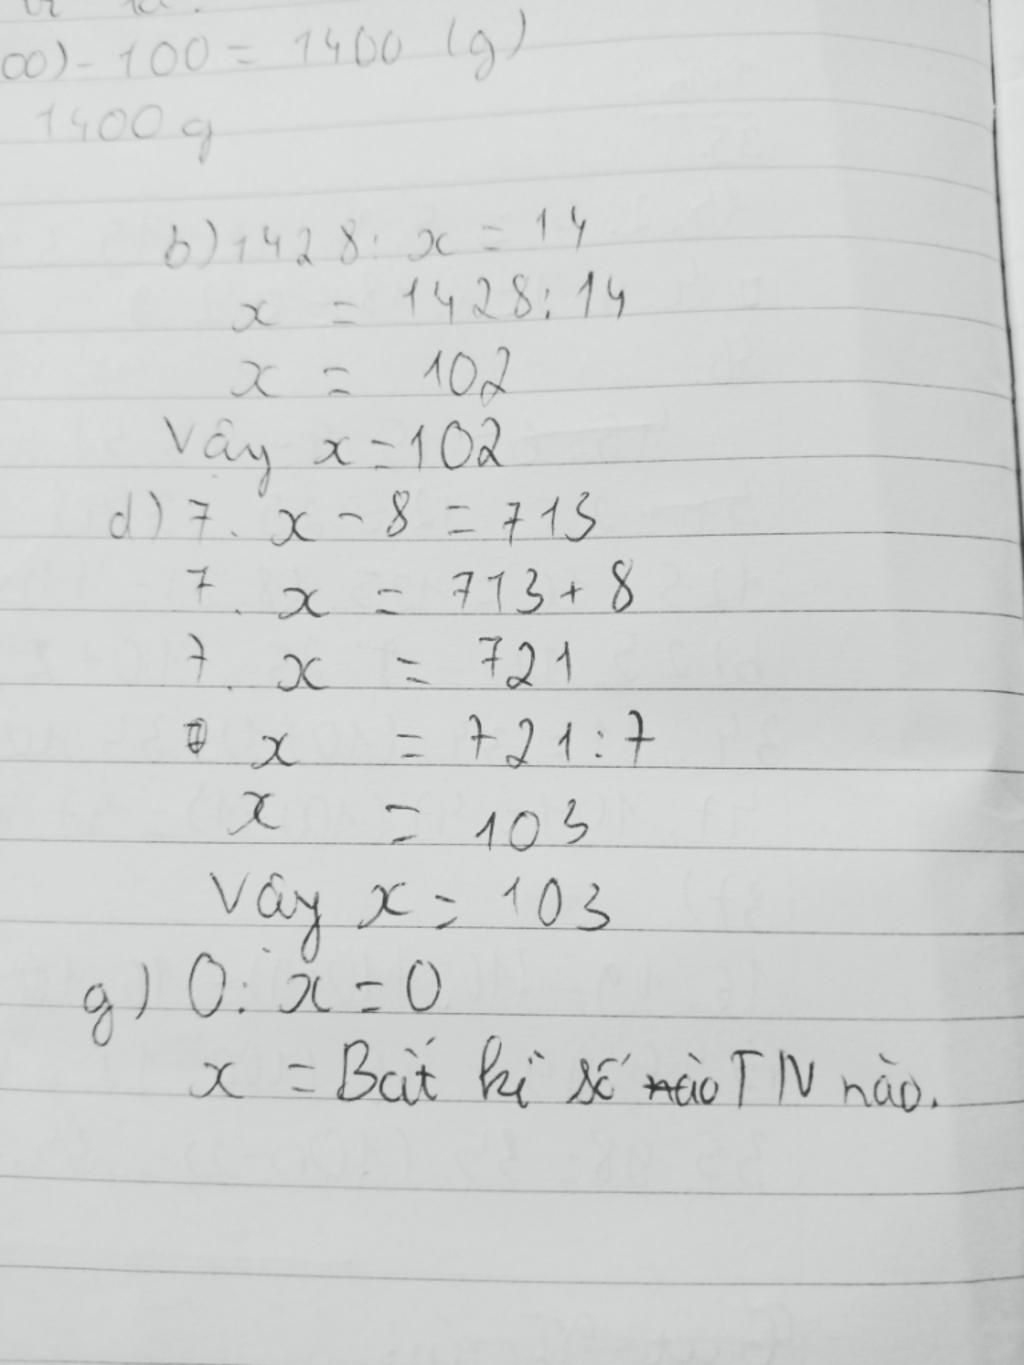 00) - 100 = 1400 (g)
1400 g
b) 1428 : x = 14
x = 1428 : 14
x = 102
Vây x = 102
d) 7. x - 8 = 713
7. x = 713 + 8
7. x = 721
x = 721 : 7
x = 103
Vây x = 103
g) 0 : x = 0
x = Bất kì số nào TN nào.